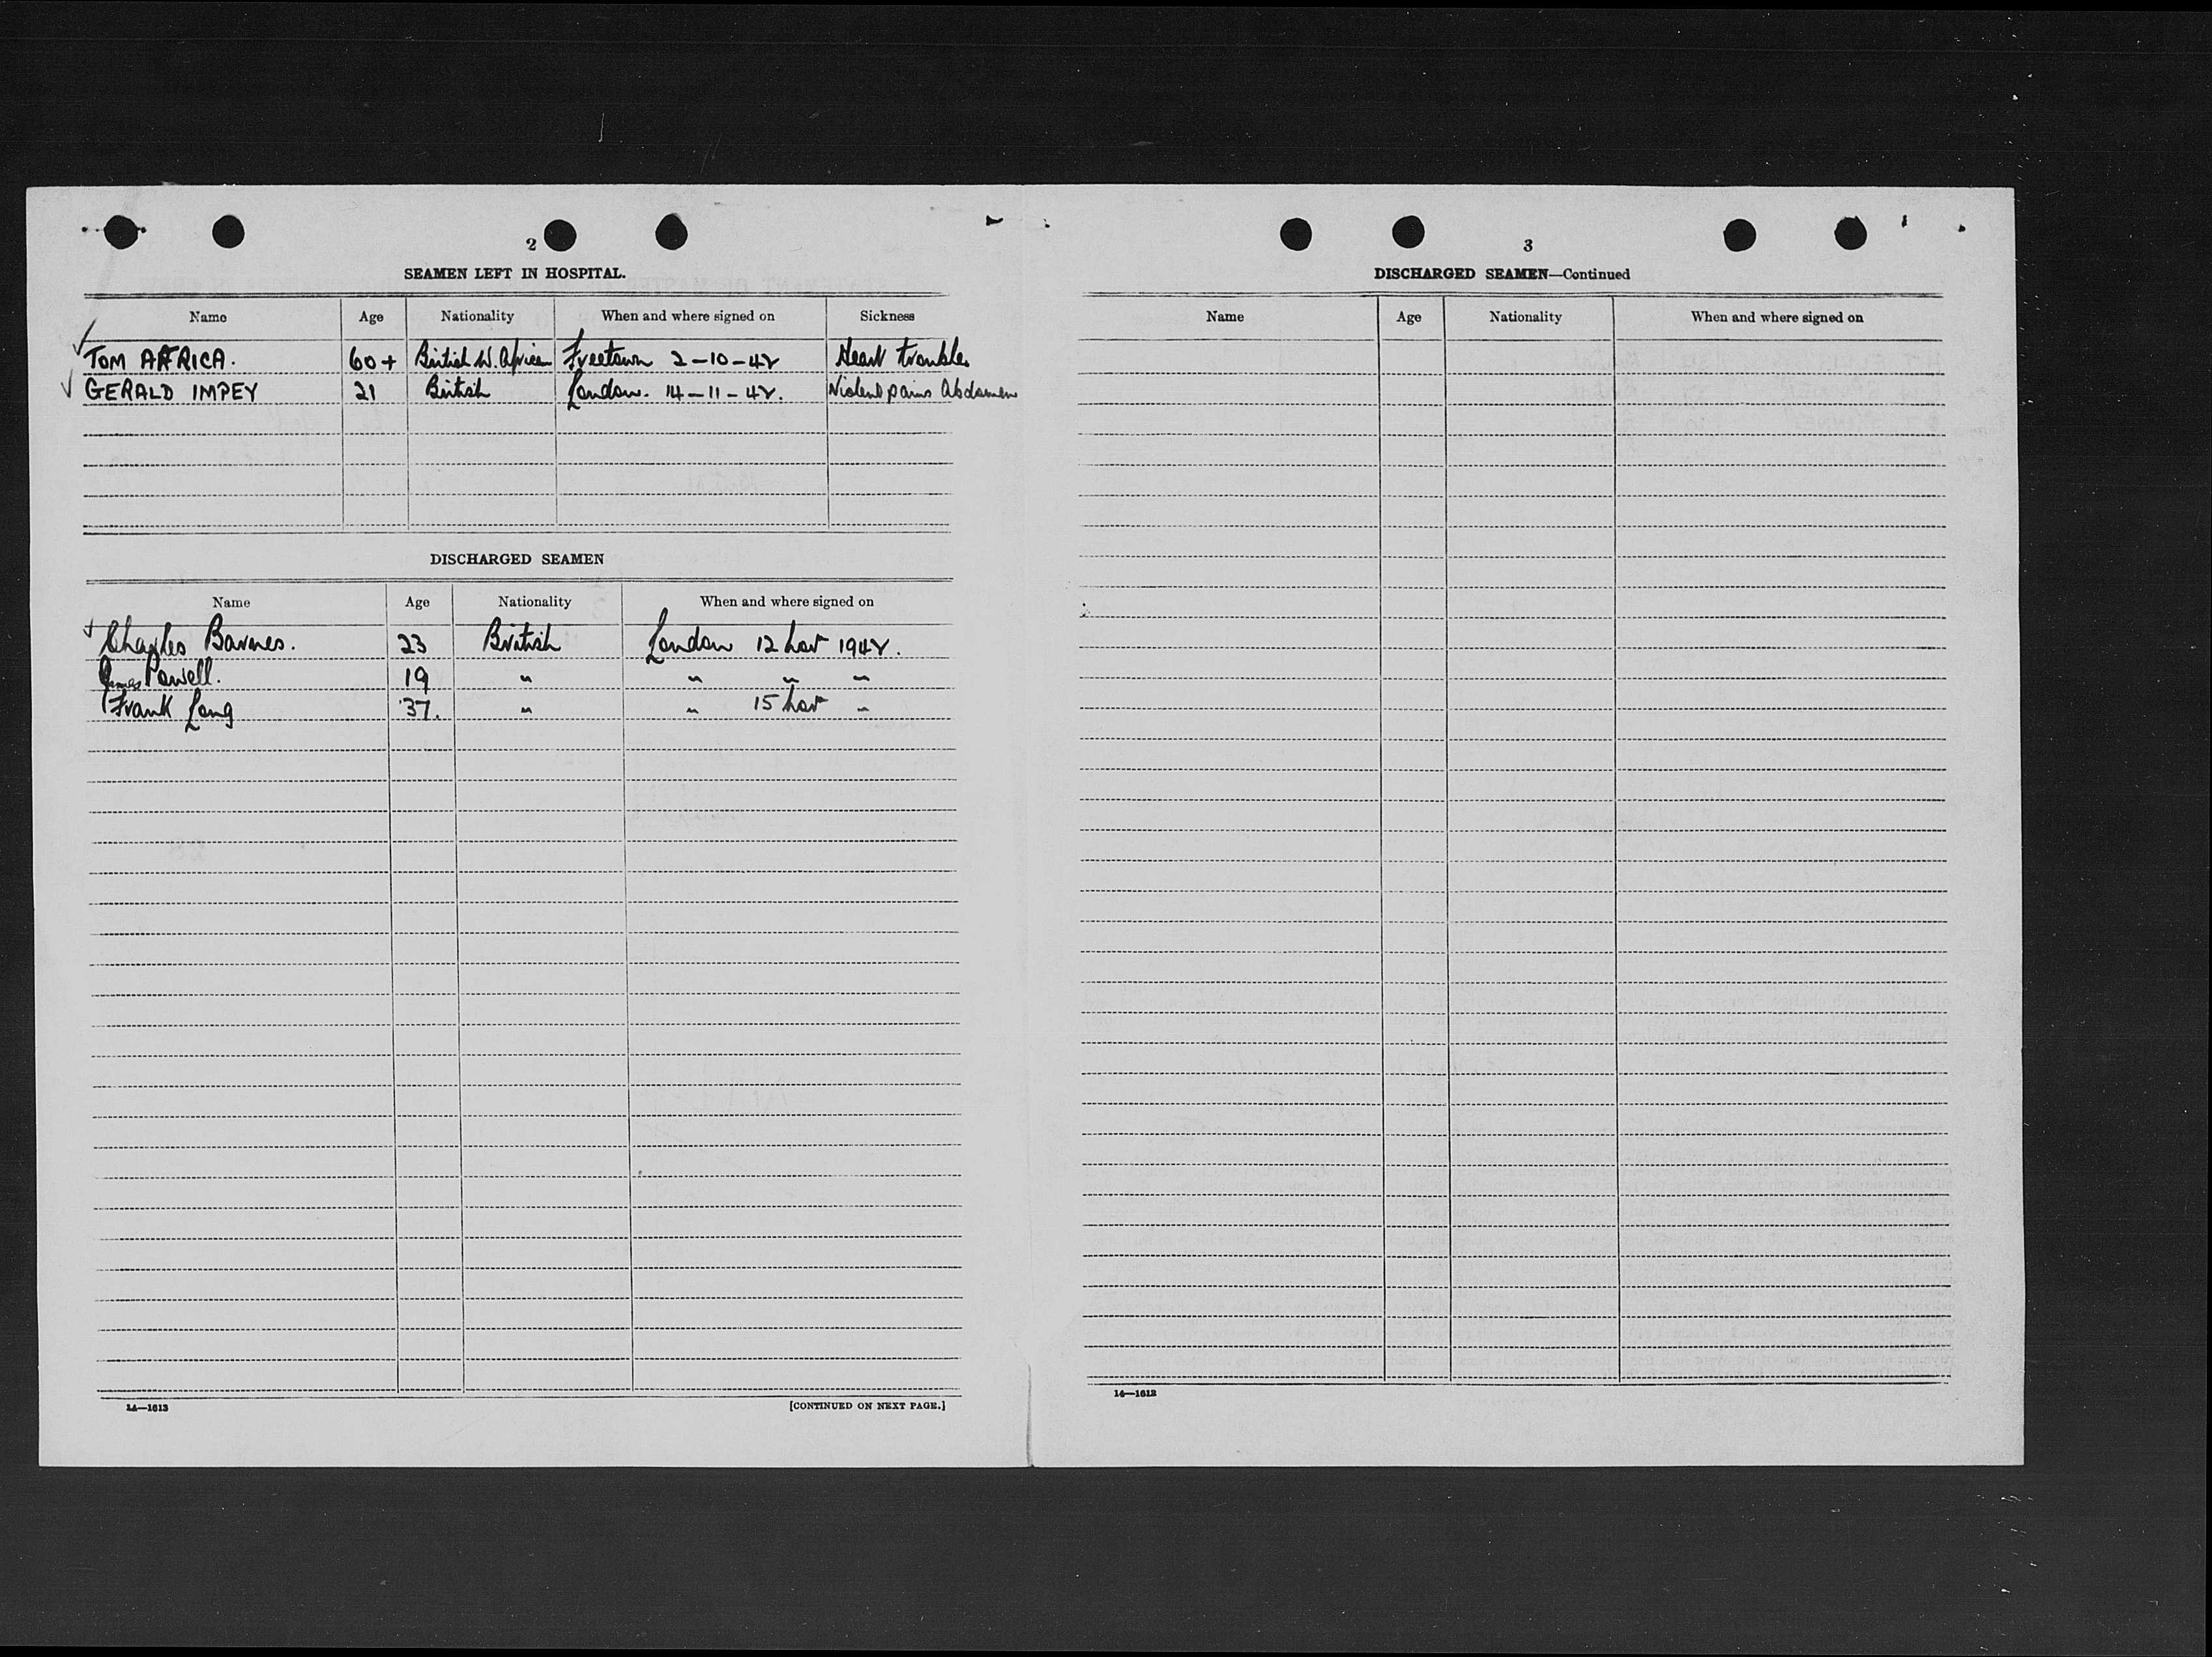 2
SEAMEN LEFT IN HOSPITAL.
Name Age Nationality When and where signed on Sickness
TOM AFRICA. 60+ British W. African Freetown 2-10-42 Heart trouble
GERALD IMPEY 21 British London. 14-11-42. Violent pains Abdomen
DISCHARGED SEAMEN
Name Age Nationality When and where signed on
Charles Barnes. 23 British London 12 Nov 1942.
James Powell. 19 " " " "
Frank Long 37. " " 15 Nov "
14—1613
[CONTINUED ON NEXT PAGE.]
3
DISCHARGED SEAMEN—Continued
Name Age Nationality When and where signed on
14—1613